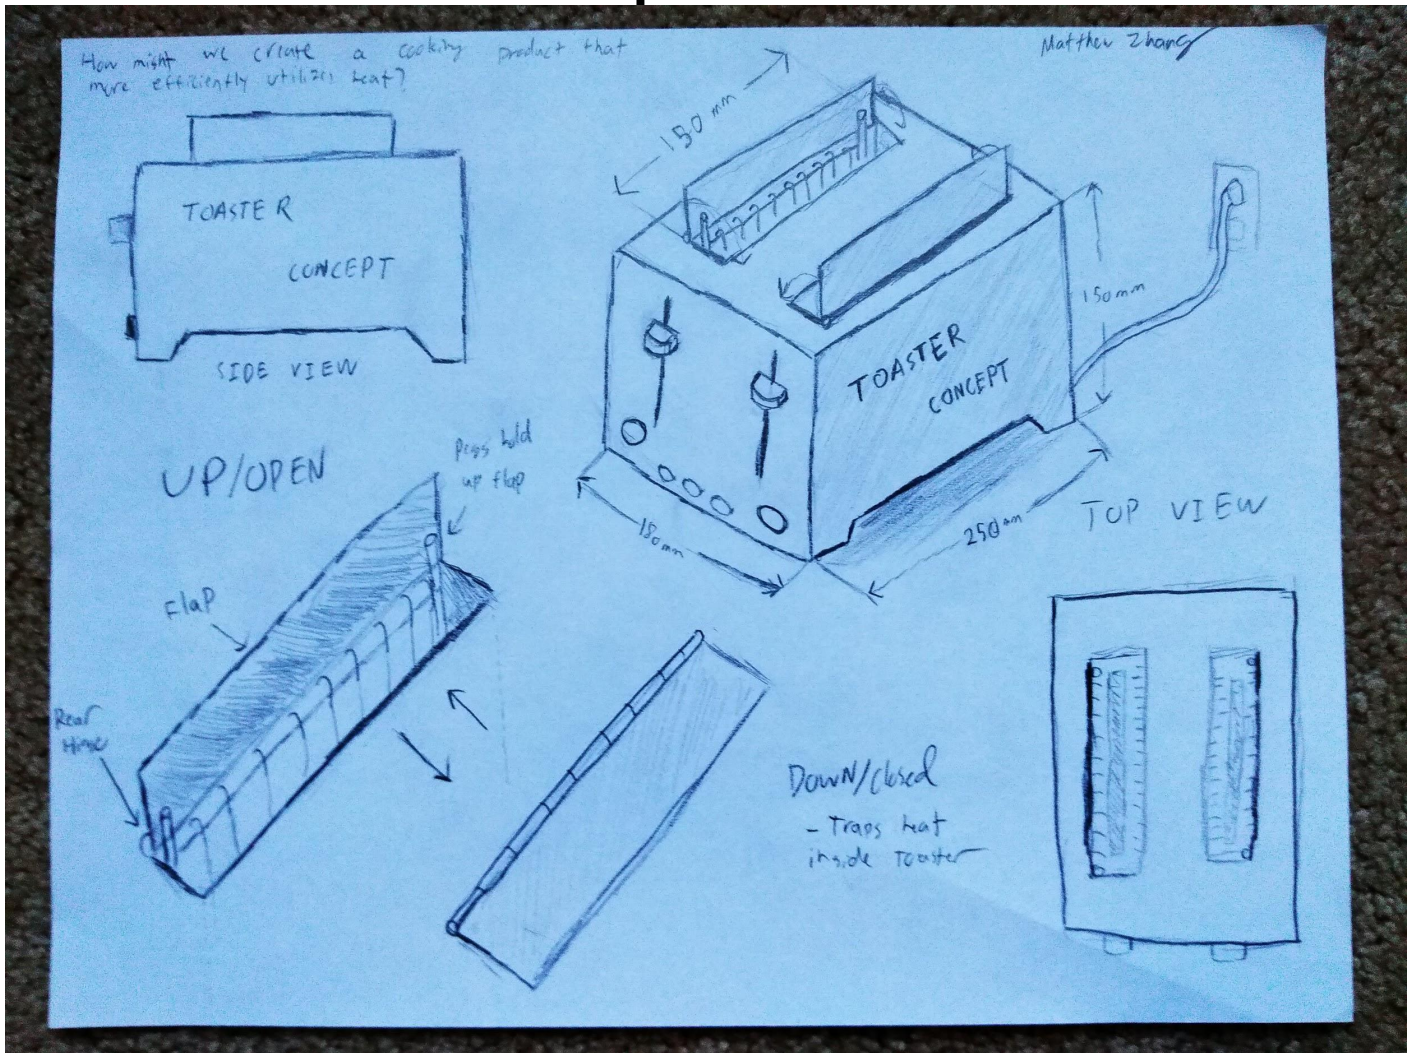 How might we create a cooking product that
more efficiently utilizes heat?
Matthew Zhang
TOASTER
CONCEPT
SIDE VIEW
150mm
TOASTER
CONCEPT
150mm
180mm
250mm
UP/OPEN
Pegs hold
up flap
Flap
Rear
Hinge
TOP VIEW
Down/closed
- Traps heat
inside Toaster